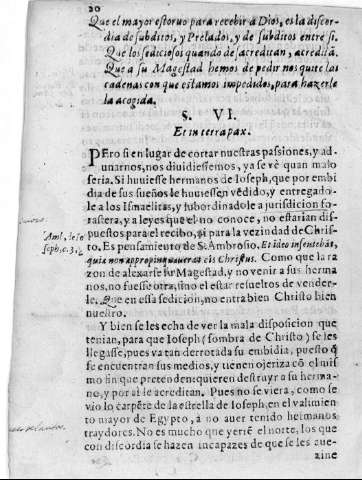 20
Que el mayor estoruo para recebir à Dios, es la discor-
dia de subditos, y Prelados, y de subditos entre si.
Que los sediciosos quando desacreditan, acreditã.
Que a su Magestad hemos de pedir nos quite las
cadenas con que estamos impedidos, para hazerle
la acogida.
§. VI.
Et in terra pax.
PEro si en lugar de cortar nuestras passiones, y ad-
unarnos, nos diuidiessemos, ya se vè quan malo
seria. Si huuiesse hermanos de Ioseph, que por embi
dia de sus sueños le huuiessen vẽdido, y entregado-
le a los Ismaelitas, y subordinadole a jurisdicion fo-
rastera, y a leyes que el no conoce, no estarian dis-
puestos para el recibo, ni para la vezindad de Chris-
to. Es pensamiento de S. Ambrosio. Et ideo
quia non appropinquauerat eis Christus. Como que la ra
zon de alexarse su Magestad, y no venir a sus herma
nos, no fuesse otra, sino el estar resueltos de vender-
le. Que en essa sedicion, no entra bien Christo bien
nuestro.
Y bien se les echa de ver la mala disposicion que
tenian, para que Ioseph (sombra de Christo) se les
llegasse, pues va tan derrotada su embidia, puesto q̃
se encuentran sus medios, y tienen ojeriza cõ el mis
mo fin que pretenden: quieren destruyr a su herma-
no, y por ai le acreditan. Pues no se viera, como se
vio lo carpẽte de la estrella de Ioseph, en el valimien
to mayor de Egypto, a no auer tenido hermanos
traydores. No es mucho que yerrẽ el norte, los que
con discordia se hazen incapazes de que se les aue-
zine